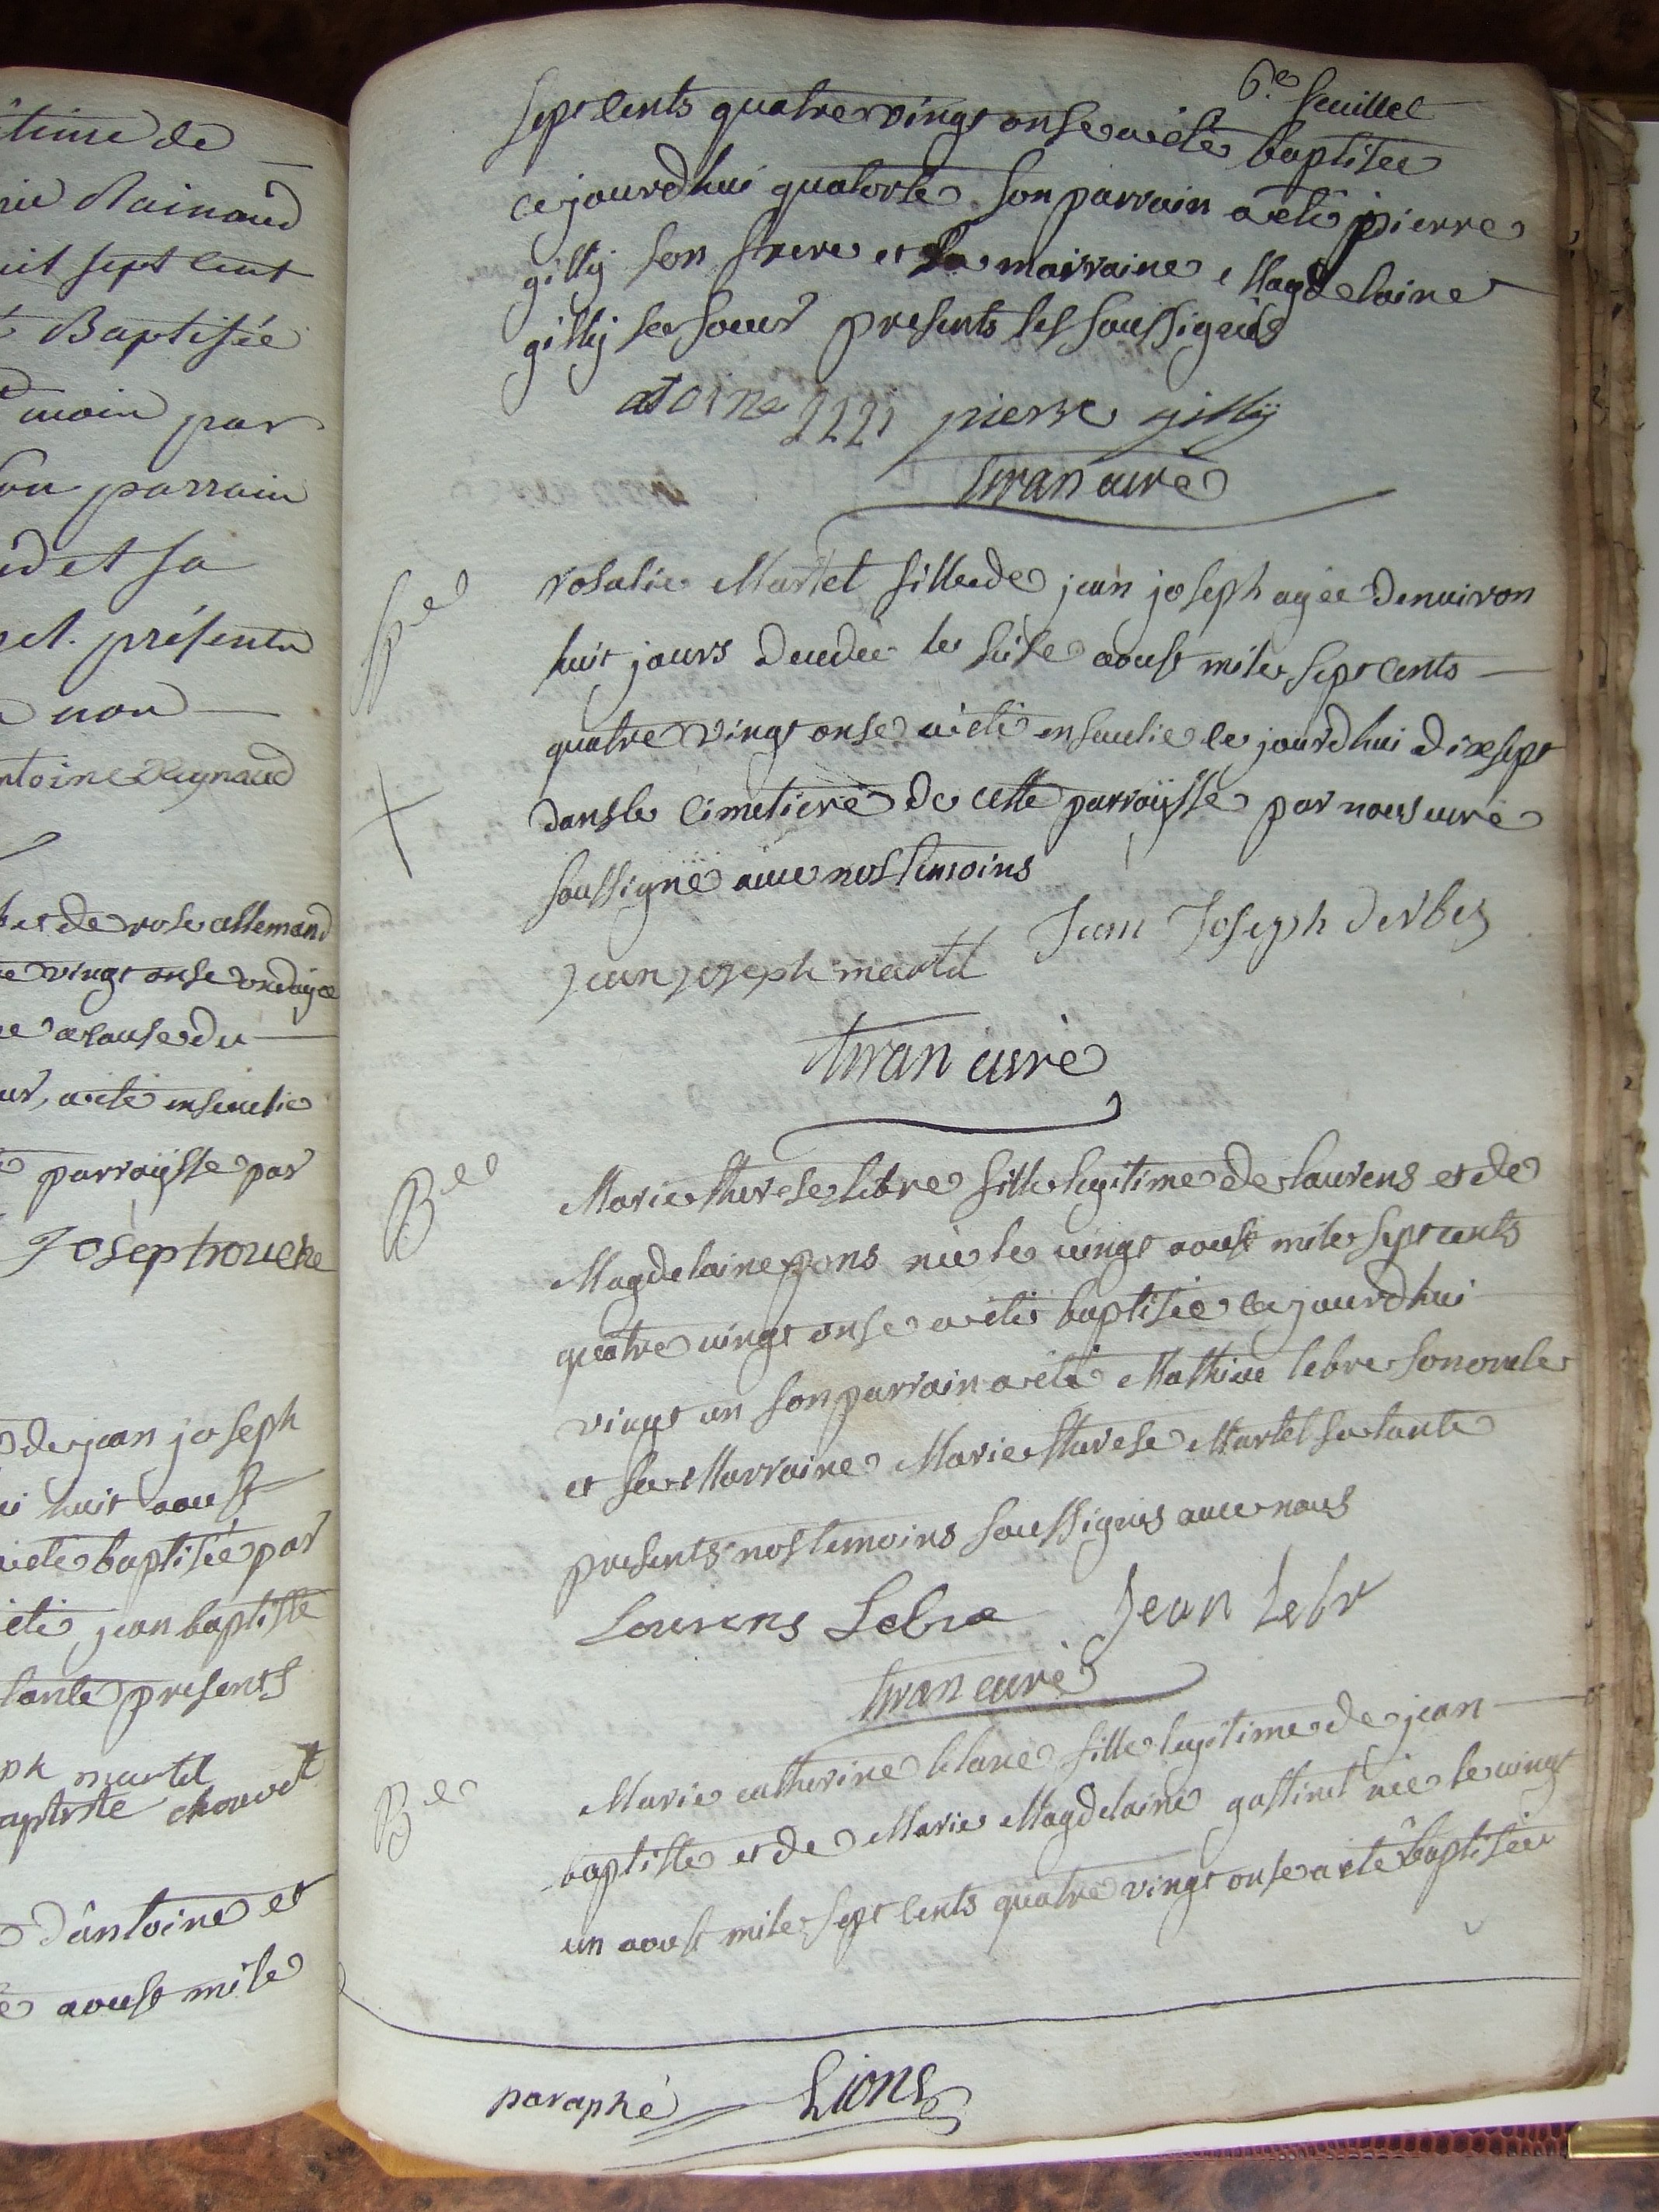 time de
Rainaud
sept cent
Baptisée
main par
parrain
et sa
présents
non
ntoine Reynaud
et de rose allemand
vingt onse ondoyée
a cause du
a été ensevelie
parroysse par
Joseph rouche
de jean joseph
huit aoust
a eté baptisée par
été jean baptiste
tante presents
ph martel
aptiste chauvet
d'antoine et
aoust mile
6.e feuillet
sept cents quatre vingt onse a été baptisée
ce jourdhui quatorse son parrain a été pierre
gilly son frere et sa marraine Magdelaine
gilly sa soeur presents les soussignés
atoine gilli pierre gilly
Tiran curé
Spel
rosalie Martel fille de jean joseph agée denuiron
huit jours decedée le seise aoust mile sept cents
quatre vingt onse a été ensevelie ce jourdhui dixsept
dans le cimetiere de cette parroysse par nous curé
soussigné avec nos temoins
Jean Joseph derbes
jean joseph martel
Tiran curé
Bee
Marie therese lebre fille legitime de laurens et de
Magdelaine pons née le vingt aoust mile sept cents
quatre vingt onse a été baptisée ce jourdhui
vingt un son parrain a été Mathieu lebre son oncle
et sa Marraine Marie therese Martel sa tante
presents nos temoins soussignés avec nous
Lourens Lebre Jean Lebr
Tiran curé
Bee
Marie catherine blanc fille legitime de jean
baptiste et de Marie Magdelaine gastinel née le vingt
un aoust mile sept cents quatre vingt onse a été baptisée
paraphé Lions